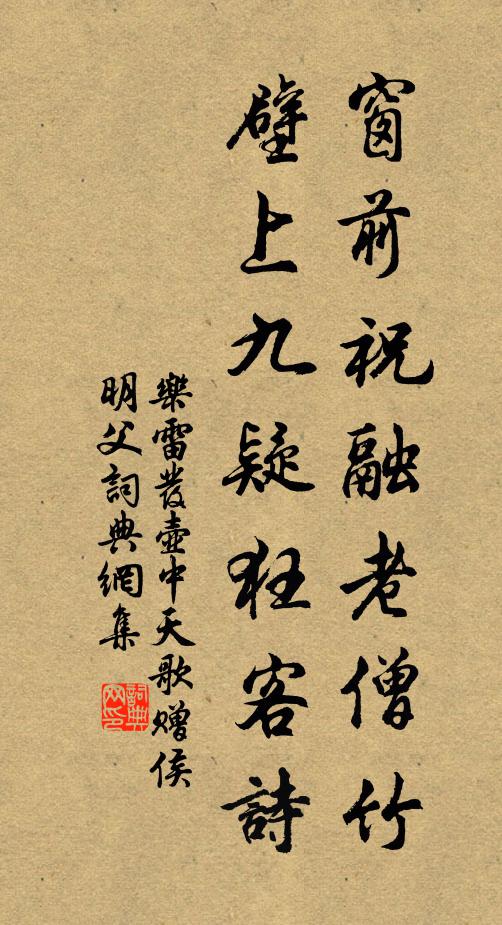 窗前祝融老僧竹
壁上九疑狂客詩
樂雷發壺中天歌贈侯
明父詞典網集
詞典网印